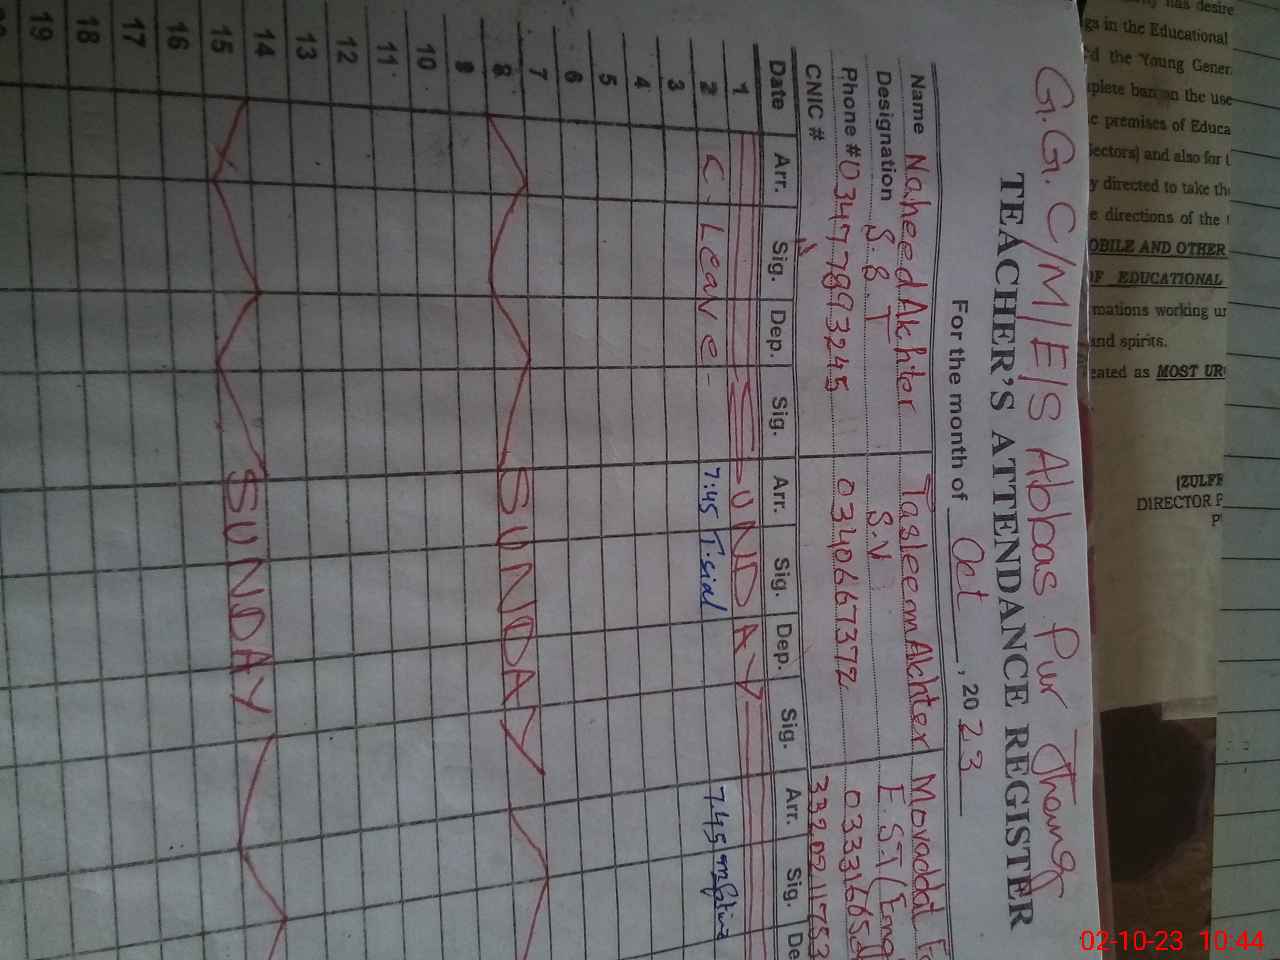 G.G.C/M/E/S Abbas Pur Jhang
TEACHER'S ATTENDANCE REGISTER
For the month of Oct, 2023
Name Naheed Akhter Tasleem Akhter Movaddat
Designation S.S.T S.V E.S.T (Eng
Phone # 03477893245 0340667372
CNIC #
Date Arr. Sig. Dep. Sig. Arr. Sig. Dep. Sig. Arr. Sig. De
1 SUNDAY
2 C. Leave 7:45 7.45
3
4
5
6
7
8 SUNDAY
9
10
11
12
13
14
15 SUNDAY
16
17
18
19
has desire
gs in the Educational
d the Young Gener
plete ban on the use
e premises of Educa
ectors) and also for t
y directed to take the
e directions of the
OBILE AND OTHER
F EDUCATIONAL
mations working un
and spirits.
eated as MOST UR
(ZULF
DIRECTOR P
02-10-23 10:44